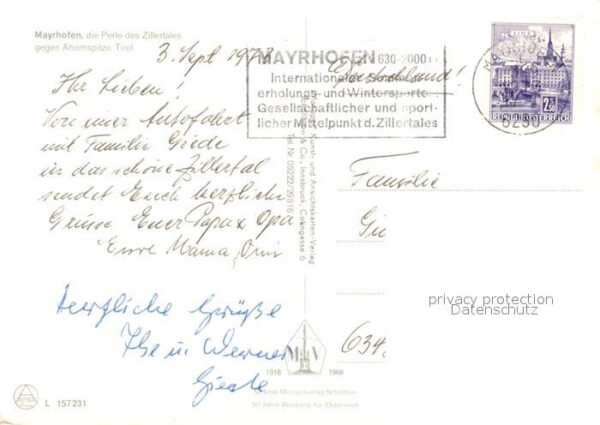 Mayrhofen, die Perle des Zillertales
gegen Ahornspitze, Tirol
3. Sept 1973
Ihr Lieben!
Von einer Autofahrt
mit Familie Giede
in das schöne Zillertal
sendet Euch herzliche
Grüsse Euer Papa u Opa
Eure Mama, Omi
Herzliche Grüße
Ihre u. Werner
Giede
L 157231
MAYRHOFEN 630-2000 m
Internationaler
erholungs- und Wintersport
Gesellschaftlicher und sport-
licher Mittelpunkt d. Zillertales
Deutschland!
LINZ
2.50
REPUBLIK ÖSTERREICH
6290
Kunst- und Ansichtskarten-Verlag
& Co., Innsbruck,
Tel. Nr. 05222/29816
M V
1918 1968
50 Jahre Werbung für Österreich
Familie
Gie
634
privacy protection
Datenschutz